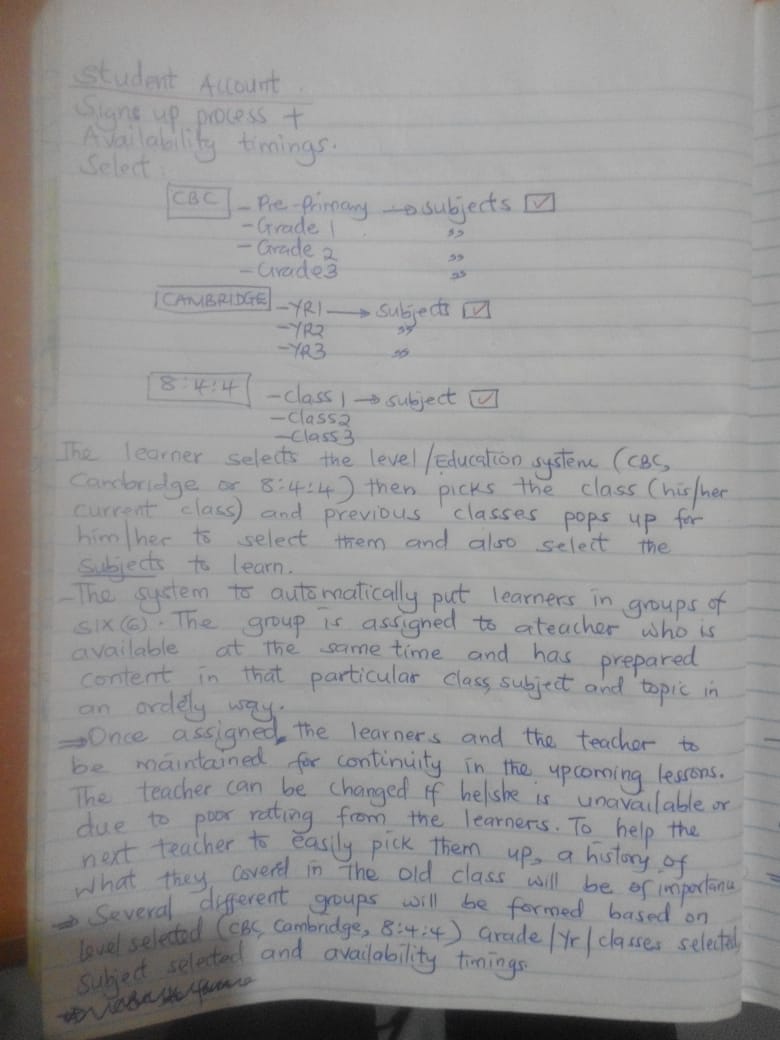 Student Account.
Signs up process +
Availability timings.
Select:
CBC - Pre-Primary → subjects ☑
- Grade 1 "
- Grade 2 "
- Grade 3 "
CAMBRIDGE - YR1 → subjects ☑
- YR2 "
- YR3 "
8:4:4 - class 1 → subject ☑
- Class 2
- Class 3
The learner selects the level/Education system (CBC,
Cambridge or 8:4:4) then picks the class (his/her
current class) and previous classes pops up for
him/her to select them and also select the
subjects to learn.
- The system to automatically put learners in groups of
six (6). The group is assigned to ateacher who is
available at the same time and has prepared
content in that particular class, subject and topic in
an ordely way.
⇒ Once assigned, the learners and the teacher to
be maintained for continuity in the upcoming lessons.
The teacher can be changed if he/she is unavailable or
due to poor rating from the learners. To help the
next teacher to easily pick them up, a history of
what they coverd in the old class will be of importance
⇒ Several different groups will be formed based on
level selected (CBC, Cambridge, 8:4:4) Grade/Yr/classes selected,
subject selected and availability timings.